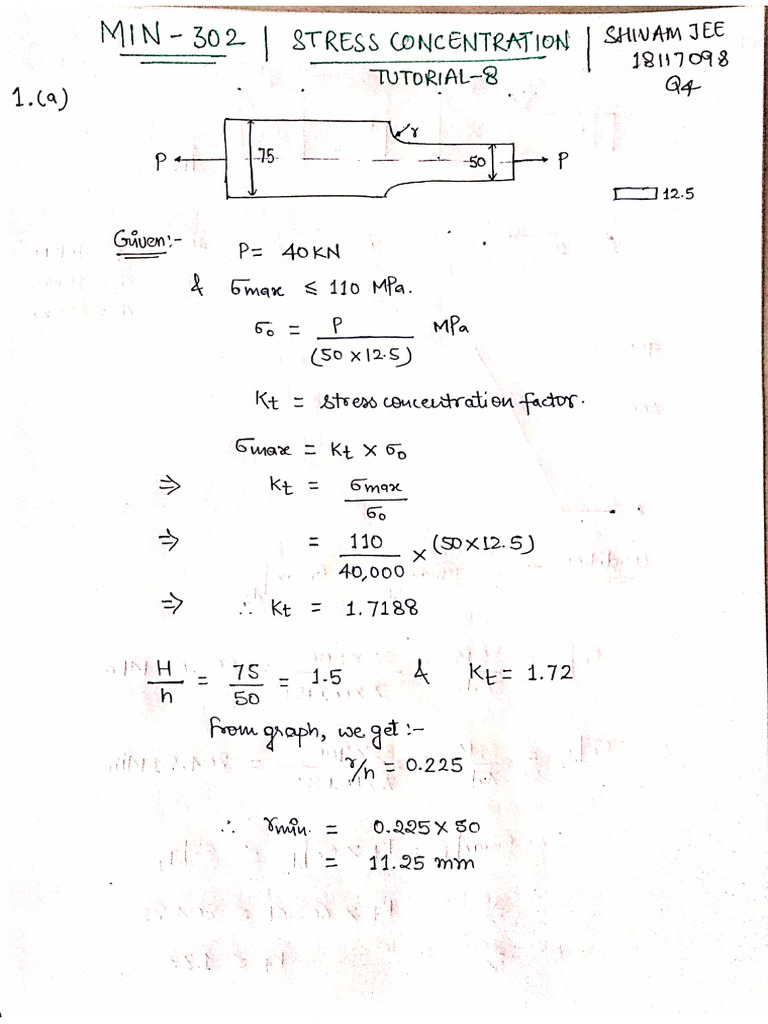 MIN - 302 | STRESS CONCENTRATION | SHIVAM JEE
TUTORIAL-8
18117098
Q4
1.(a)
r
P
75
50
P
12.5
Given:-
P = 40KN
& σmax ≤ 110 MPa.
σ₀ = P / (50 × 12.5) MPa
Kt = stress concentration factor.
σmax = Kt × σ₀
⇒ Kt = σmax / σ₀
⇒ = 110 / 40,000 × (50×12.5)
⇒ ∴ Kt = 1.7188
H/h = 75/50 = 1.5 & Kt = 1.72
from graph, we get :-
r/h = 0.225
∴ rmin. = 0.225 × 50
= 11.25 mm